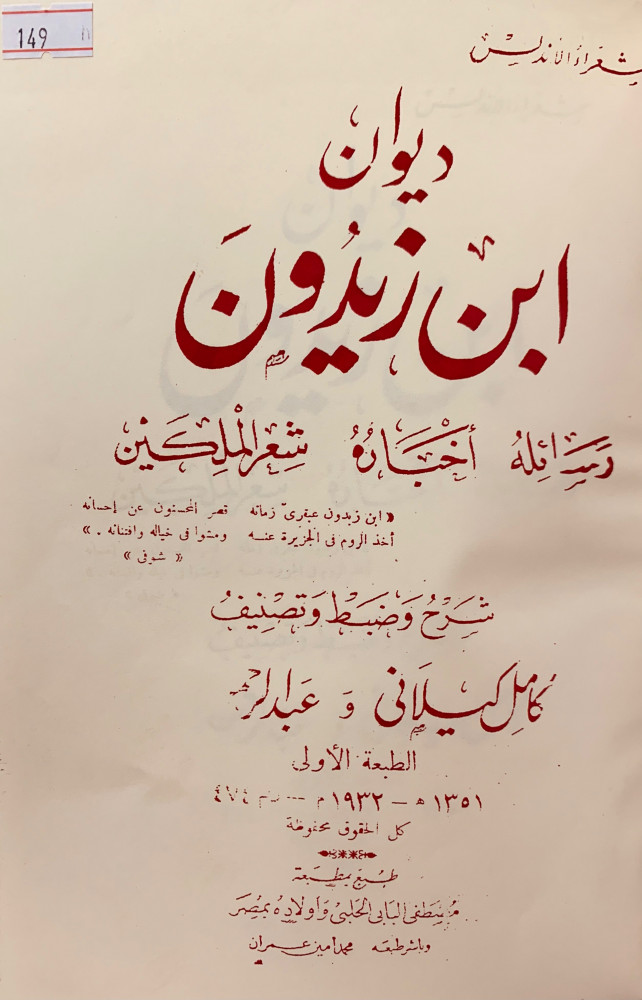 149
شعراء الأندلس
ديوان
ابن زيدُونَ
رَسَائِلهُ أَخْبَارُهُ شِعْر الْمَلِكَيْن
« ابن زيدون عبقرىّ زمانه قصر المحسنون عن إحسانه
أخذ الروم فى الجزيرة عنه ومشوا فى خياله وافتنانه . »
« شوقى »
شَرْحُ وَضَبْط وَتَصْنِيفُ
كامِل كيلَانى وَ عَبد الرحمن
الطبعة الأولى
١٣٥١ هـ – ١٩٣٢ م – ٤٧٤
كل الحقوق محفوظة
طبع بمطبعة
مُصْطَفى البَابى الحَلَبىْ وَأولَادُهُ بمصْر
وباشر طبعه محمد أمين عمران